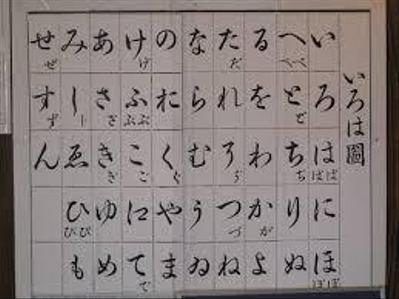 いろは圖
いろはばぱにほぼぽ
へべぺとどちぢりぬ
るをわかがよ
ただれそぞつづね
ならむうゐ
のおくぐやま
けげふぶぷこごえてで
あさざきぎゆめ
みしじゑひびぴも
せぜすずん